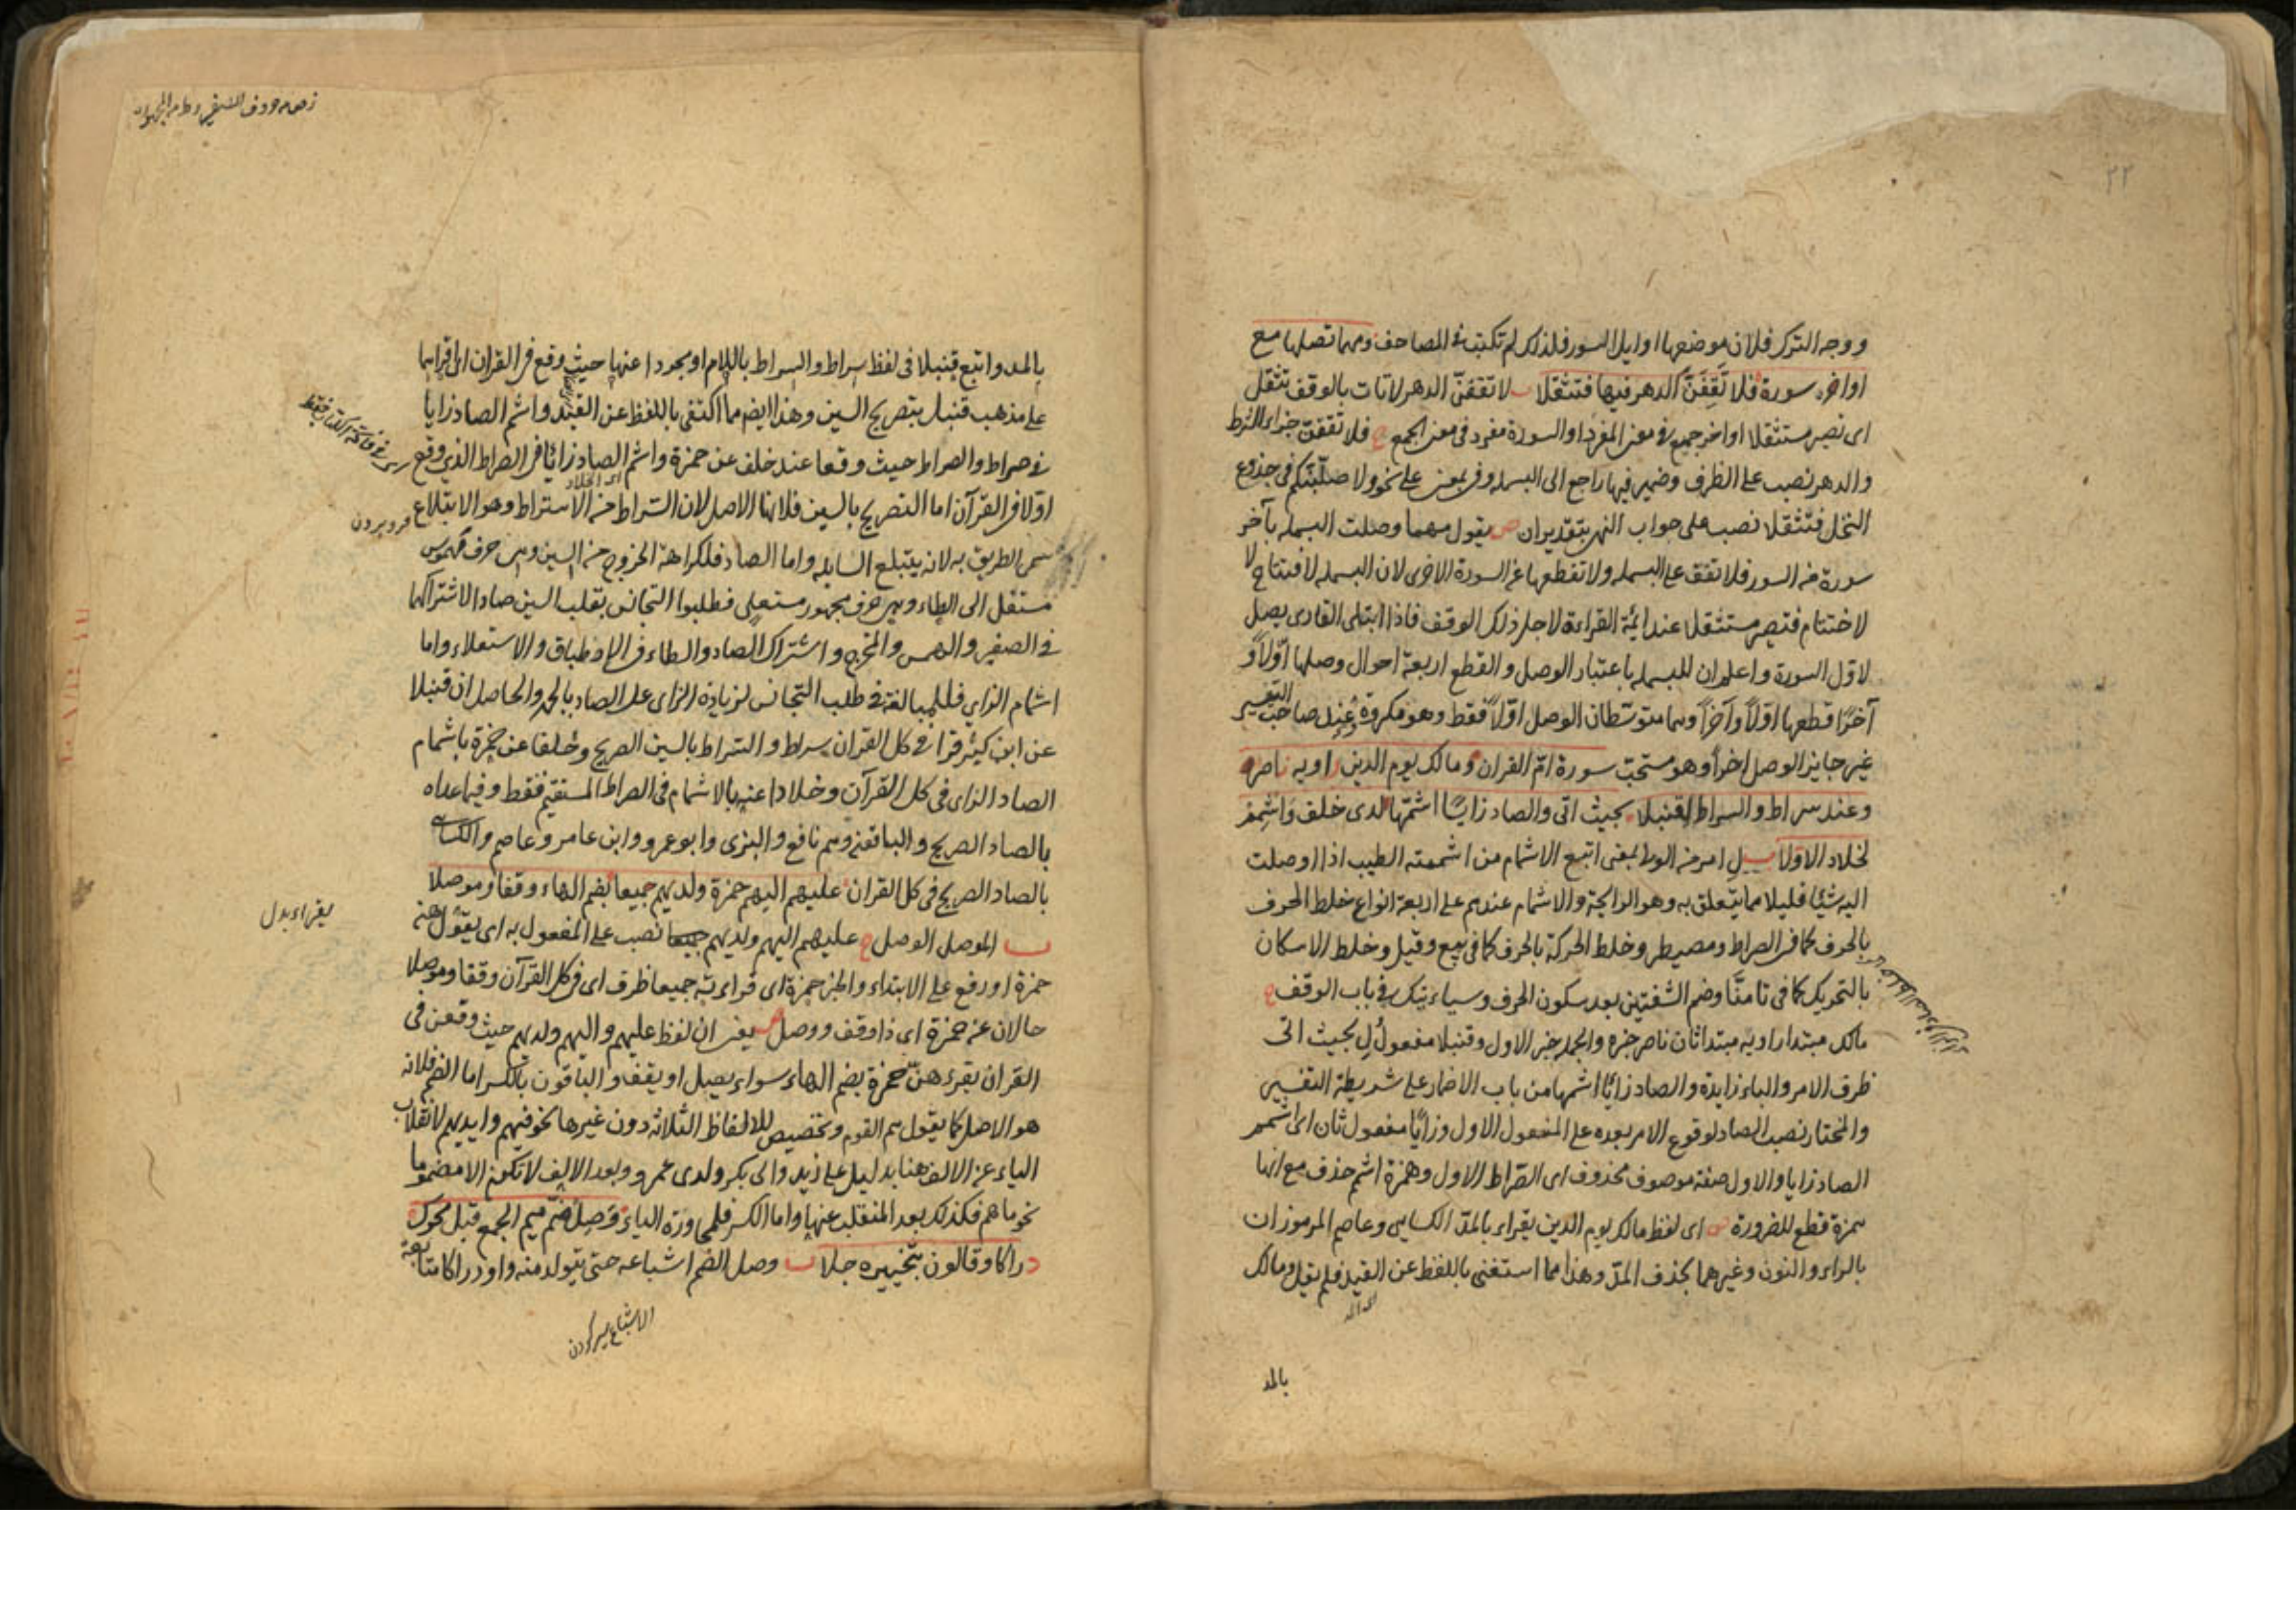 ٢٢
ووجه الترك فلان موضعها اوايل السور فلذلك لم تكتب في المصاحف ومهما تصلها مع
اواخر سورة فلا تَقِفَنَّ الدهر فيها فتثقلا لا تقفنّ الدهر لا تات بالوقف تثقل
اى تصير مستثقلا اواخر جمع في معنى المفرد او السورة مفرد فى معنى الجمع ح فلا تقفنّ جزاء الشرط
والدهر نصب على الظرف وضمير فيها راجع الى البسملة وفى بمعنى على نحو ولاصلّبنّكم فى جذوع
النخل فتثقلا نصب على جواب النهى بتقدير ان ص يقول مهما وصلت البسمله بآخر
سورة من السور فلا تقف على البسمله ولا تقطعها عن السورة الاخرى لان البسمله لافتتاح لا
لاختتام فتصير مستثقلا عند ائمّة القراءة لاجل ذلك الوقف فاذا ابتلى القارى يصل
لاوّل السورة واعلم ان للبسمله باعتبار الوصل والقطع اربعة احوال وصلها اوّلاً و
آخرًا قطعها اوّلاً وآخراً وهما متوسّطان الوصل اوّلاً فقط وهو مكروة عند صاحب التيسير
غير جايز الوصل اخراً وهو مستحبّ سورة امّ القران ومالك يوم الدين راويه ناصر
وعند سراط والسراط لِ قنبلا بحيث اتى والصاد زايًا اشمّها لدى خلف وَاشْمِمْ
لخلاد الاوّلا ل امر من الولا بمعنى اتبع الاشمام من اشممته الطيب اذا اوصلت
اليه شيئا قليلا مما يتعلق به وهو الرايحة والاشمام عندهم على اربعة انواع خلط الحرف
بالحرف كما فى الصراط ومصيطر وخلط الحركة بالحرف كما فى بيع وقيل وخلط الاسكان
بالتحريك كما فى تامنّا وضم الشفتين بعد سكون الحرف وسياءتيك فى باب الوقف ح
مالك مبتدا راويه مبتدا ثان ناصر خبره والجملة خبر الاول وقنبلا مفعول لِ بحيث اتى
ظرف الامر والباء زايدة والصاد زايًا اشمها من باب الاضمار على شريطة التفسير
والمختار نصب الصاد لوقوع الامر بعده على المفعول الاول وزايًا مفعول ثان اى اشمم
الصاد زايا والاول صفة موصوف محذوف اى الصّراط الاول وهمزة اشمم حذف مع انها
همزة قطع للضرورة ص اى لفظ مالك يوم الدين يقراء بالمدّ الكسايى وعاصم المرموزان
بالراء والنون وغيرهما بحذف المدّ وهذا مما استغنى باللفظ عن القيد فلم يقل ومالك
بالمد
بالمد واتبع قنبلا فى لفظ سراط والسراط باللام او مجردا عنها حيث وقع فى القران اى اقراهما
على مذهب قنبل بتصريح السين وهذا ايضا مما اكتفى باللفظ عن القيد واشم الصاد زايا
فى صراط والصراط حيث وقعا عند خلف عن حمزة واشم الصاد زايًا فى الصراط الذى وقع
اوّلا فى القرآن اما التصريح بالسين فلانها الاصل لان السّراط من الاستراط وهو الابتلاع
فروبردن
سمى الطريق به لانه يبتلع السابله واما الصاد فلكراهة الخروج من السين وهى حرف مهموس
مستفل الى الطاء وهى حرف مجهور مستعلى فطلبوا التجانس بقلب السين صادا لاشتراكهما
فى الصفير والهمس والمخرج واشتراك الصاد والطاء فى الاطباق والاستعلاء واما
اشمام الزاى فللمبالغة فى طلب التجانس لزيادة الزاى على الصاد بالجهر والحاصل ان قنبلا
عن ابن كثير قرا فى كل القران سراط والسراط بالسين الصريح وخلفا عن حمزة باشمام
الصاد الزاى فى كل القرآن وخلادا عنه بالاشمام فى الصراط المستقيم فقط وفيما عداه
بالصاد الصريح والباقين وهم نافع والبزى وابو عمرو وابن عامر وعاصم والكسائى
بالصاد الصريح فى كل القران عليهم اليهم حمزة ولديهم جميعا بضم الهاء وقفا وموصلا
الموصل الوصل ح عليهم اليهم ولديهم جميعا نصب على المفعول به اى يقول
حمزة او رفع على الابتداء والخبر حمزة اى قراءته جميعا ظرف اى فى كل القرآن وقفا وموصلا
حالان عن حمزة اى ذا وقف ووصل ص يعنى ان لفظ عليهم واليهم ولديهم حيث وقعن فى
القران يقرءهنّ حمزة بضم الهاء سواء يصل او يقف والباقون بالكسر اما الضم فلانه
هو الاصل كما يقول هم القوم وتخصيص الالفاظ الثلاثة دون غيرها نحو فيهم وايديهم لانقلاب
الياء عن الالف هنا بدليل على زيد والى بكر ولدى عمرو وبعد الالف لا تكون الا مضموما
نحو ما هم فكذلك بعد المنقلب عنها واما الكسر فلمجاورة الياء وَصِلْ ضمّ ميم الجمع قبل محرك
دراكا وقالون بتخييره جلا وصل الضم اشباعه حتى يتولد منه واو دراكا متابعة